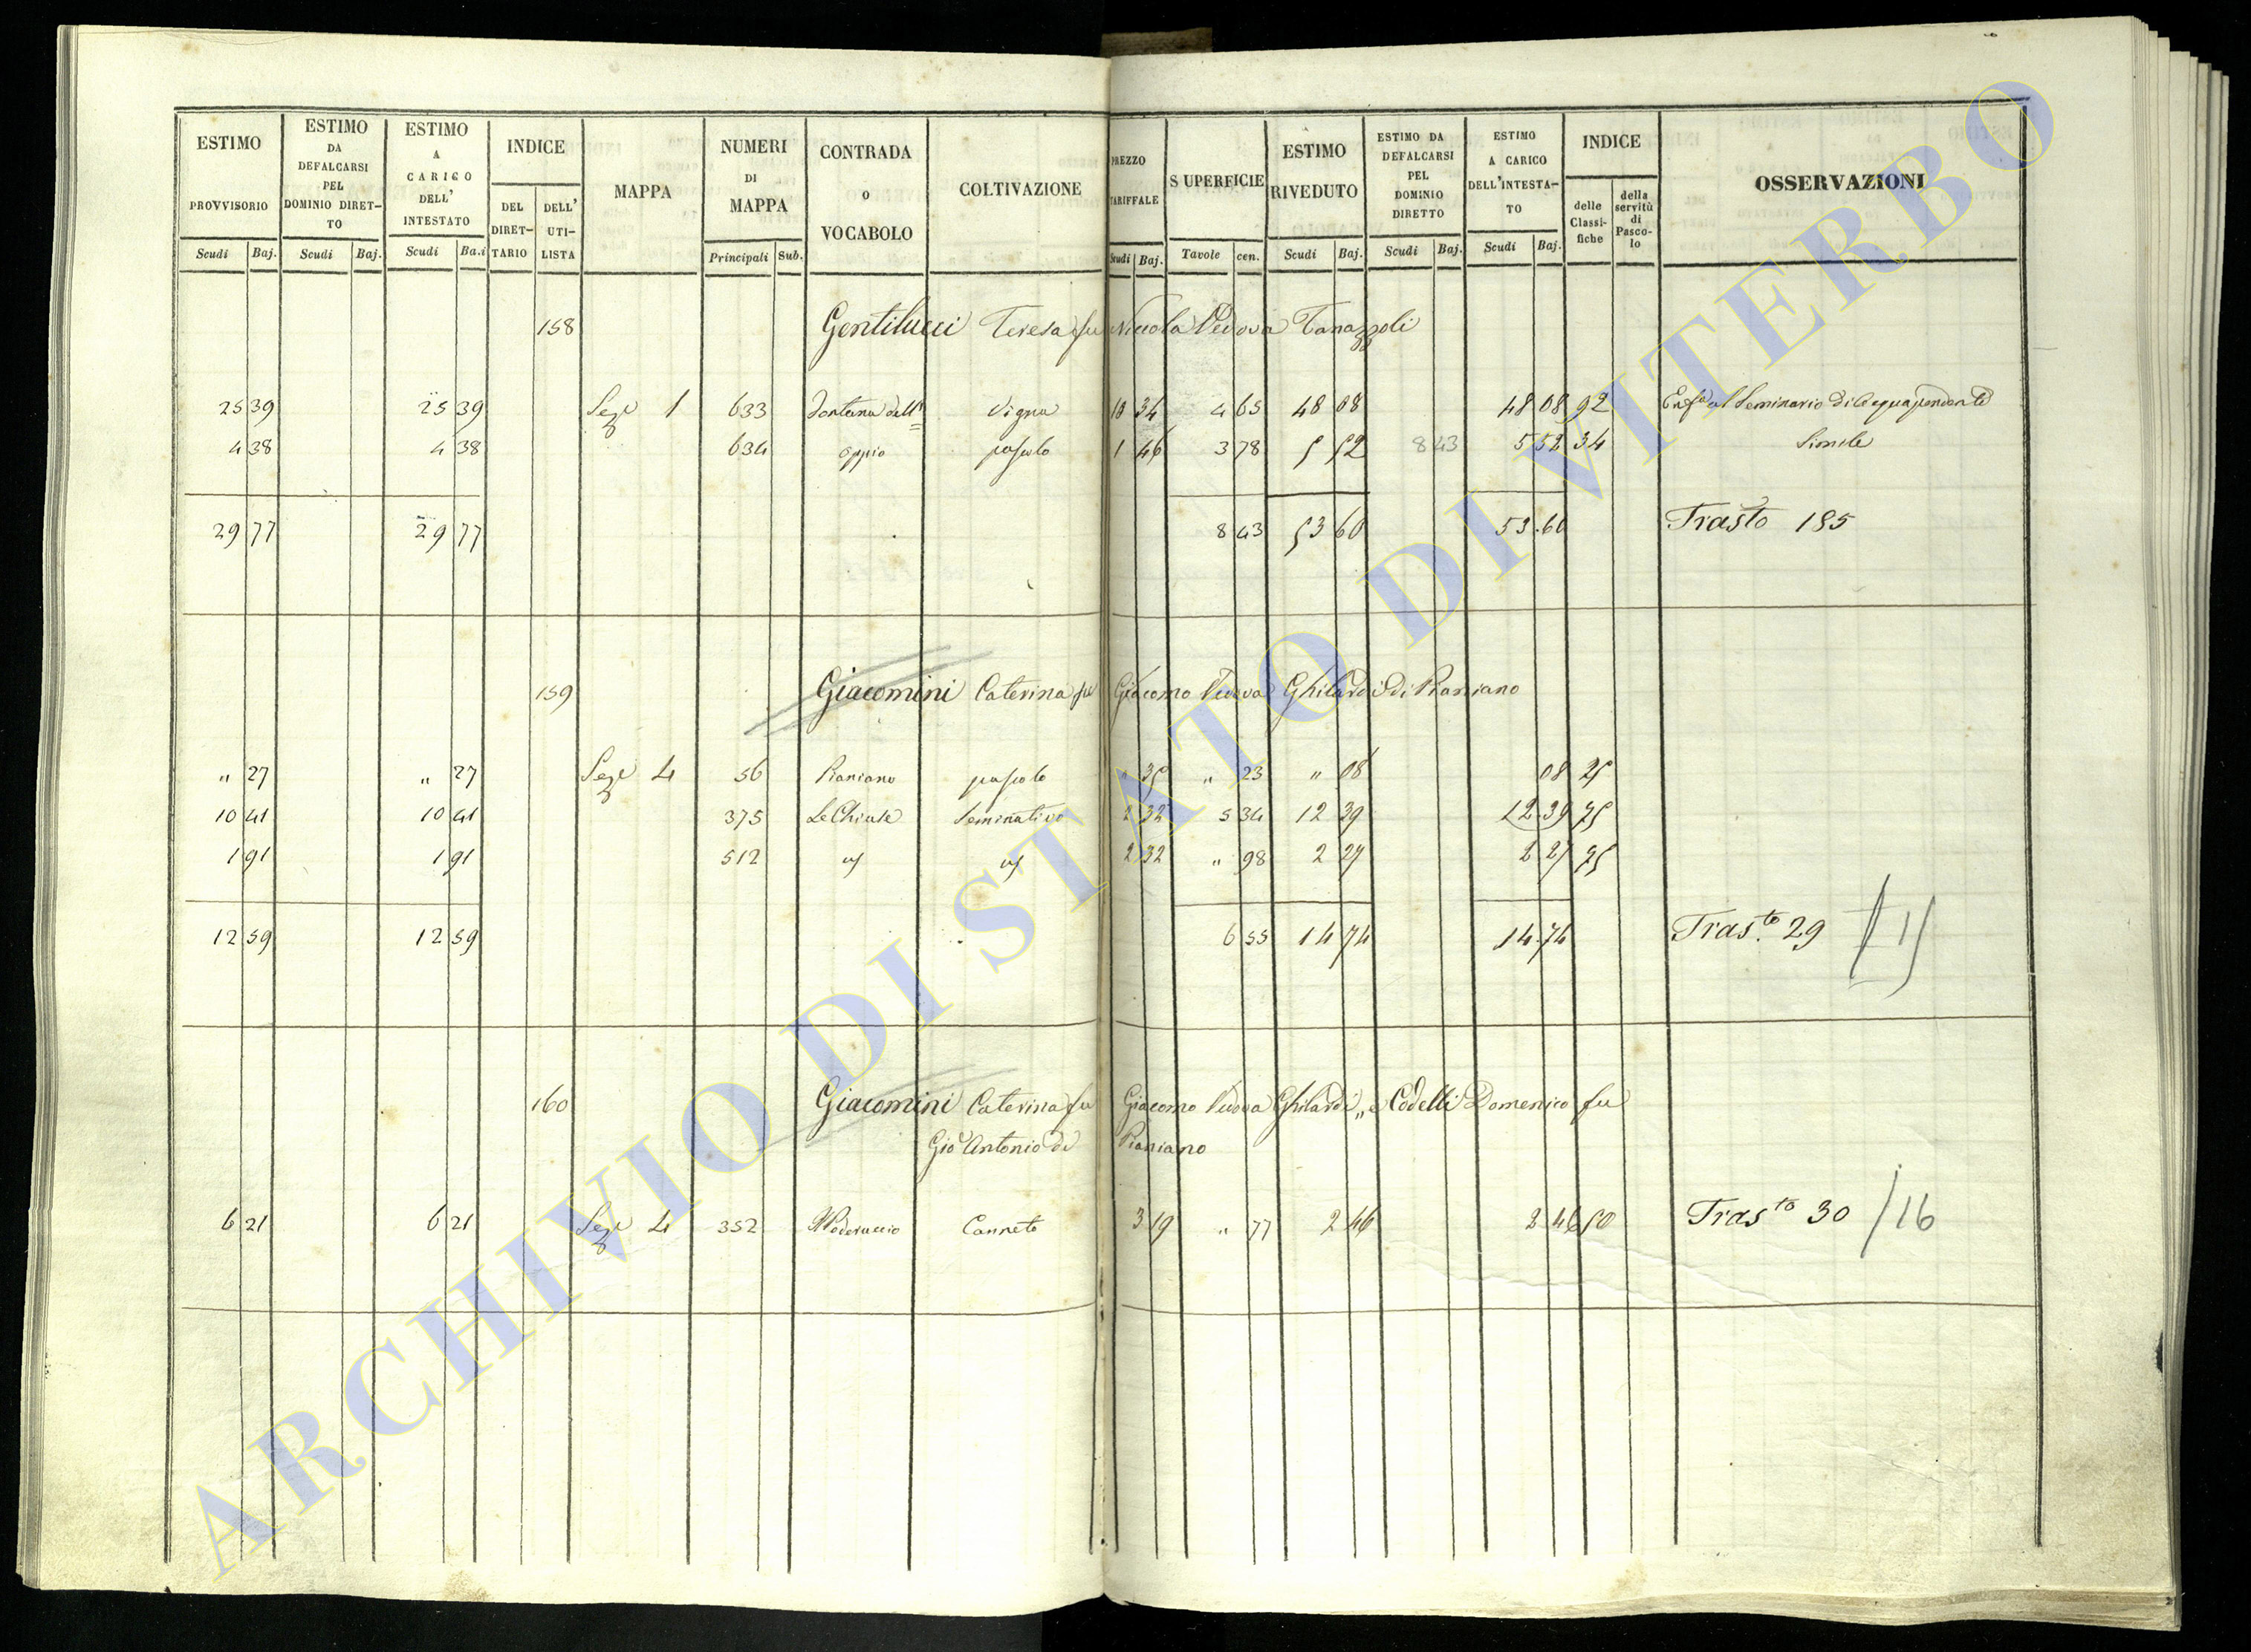 ESTIMO PROVVISORIO
ESTIMO DA DEFALCARSI PEL DOMINIO DIRET-TO
ESTIMO A CARICO DELL' INTESTATO
INDICE
DEL DIRET-TARIO
DELL' UTI-LISTA
MAPPA
NUMERI DI MAPPA
CONTRADA O VOCABOLO
COLTIVAZIONE
PREZZO TARIFFALE
SUPERFICIE
ESTIMO RIVEDUTO
ESTIMO DA DEFALCARSI PEL DOMINIO DIRETTO
ESTIMO A CARICO DELL'INTESTA-TO
INDICE
delle Classi-fiche
della servitù di Pasco-lo
OSSERVAZIONI
Scudi Baj. Scudi Baj. Scudi Ba.i Principali Sub. Scudi Baj. Tavole cen. Scudi Baj. Scudi Baj. Scudi Baj.
158 Gentilucci Teresa fu Niccola Vedova
25 39 25 39 Sez.e 1 633 Fontana dell' vigna 10 34 4 65 48 08 48 08 92 Enf.a al Seminario di Acquapendente
4 38 4 38 634 oppio pascolo 1 46 3 78 5 52 8 43 5 52 34 Simile
29 77 29 77 8 43 53 60 53.60 Trasto 185
159 Giacomini Caterina fu Giacomo Vedova Ghilardi di Pianiano
" 27 " 27 Sez.e 4 56 Pianiano pascolo " 35 " 23 " 08 08 25
10 41 10 41 375 Le Chiuse Seminativo 2 32 5 34 12 39 12.39 75
1 91 1 91 512 2 32 " 98 2 27 2 27 75
12 59 12 59 6 55 14 74 14.74 Tras.to 29
160 Giacomini Caterina fu Giacomo Vedova Ghilardi, e Codelli Domenico fu
Gio Antonio di Pianiano
6 21 6 21 Sez.e 4 352 Canneto 3 19 " 77 2 46 2 46 50 Tras.to 30 /16
ARCHIVIO DI STATO DI VITERBO